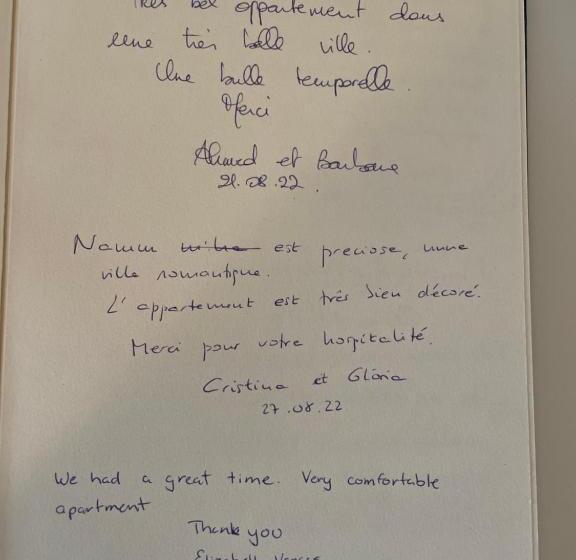 Très bel appartement dans
une très belle ville.
Une bulle temporelle.
Merci
Ahmed et
21.08.22.
Namur est preciose, unne
ville romantique.
L'appartement est très bien décoré.
Merci pour votre hospitalité.
Cristina et Gloria
27.08.22
We had a great time. Very comfortable
apartment
Thank you